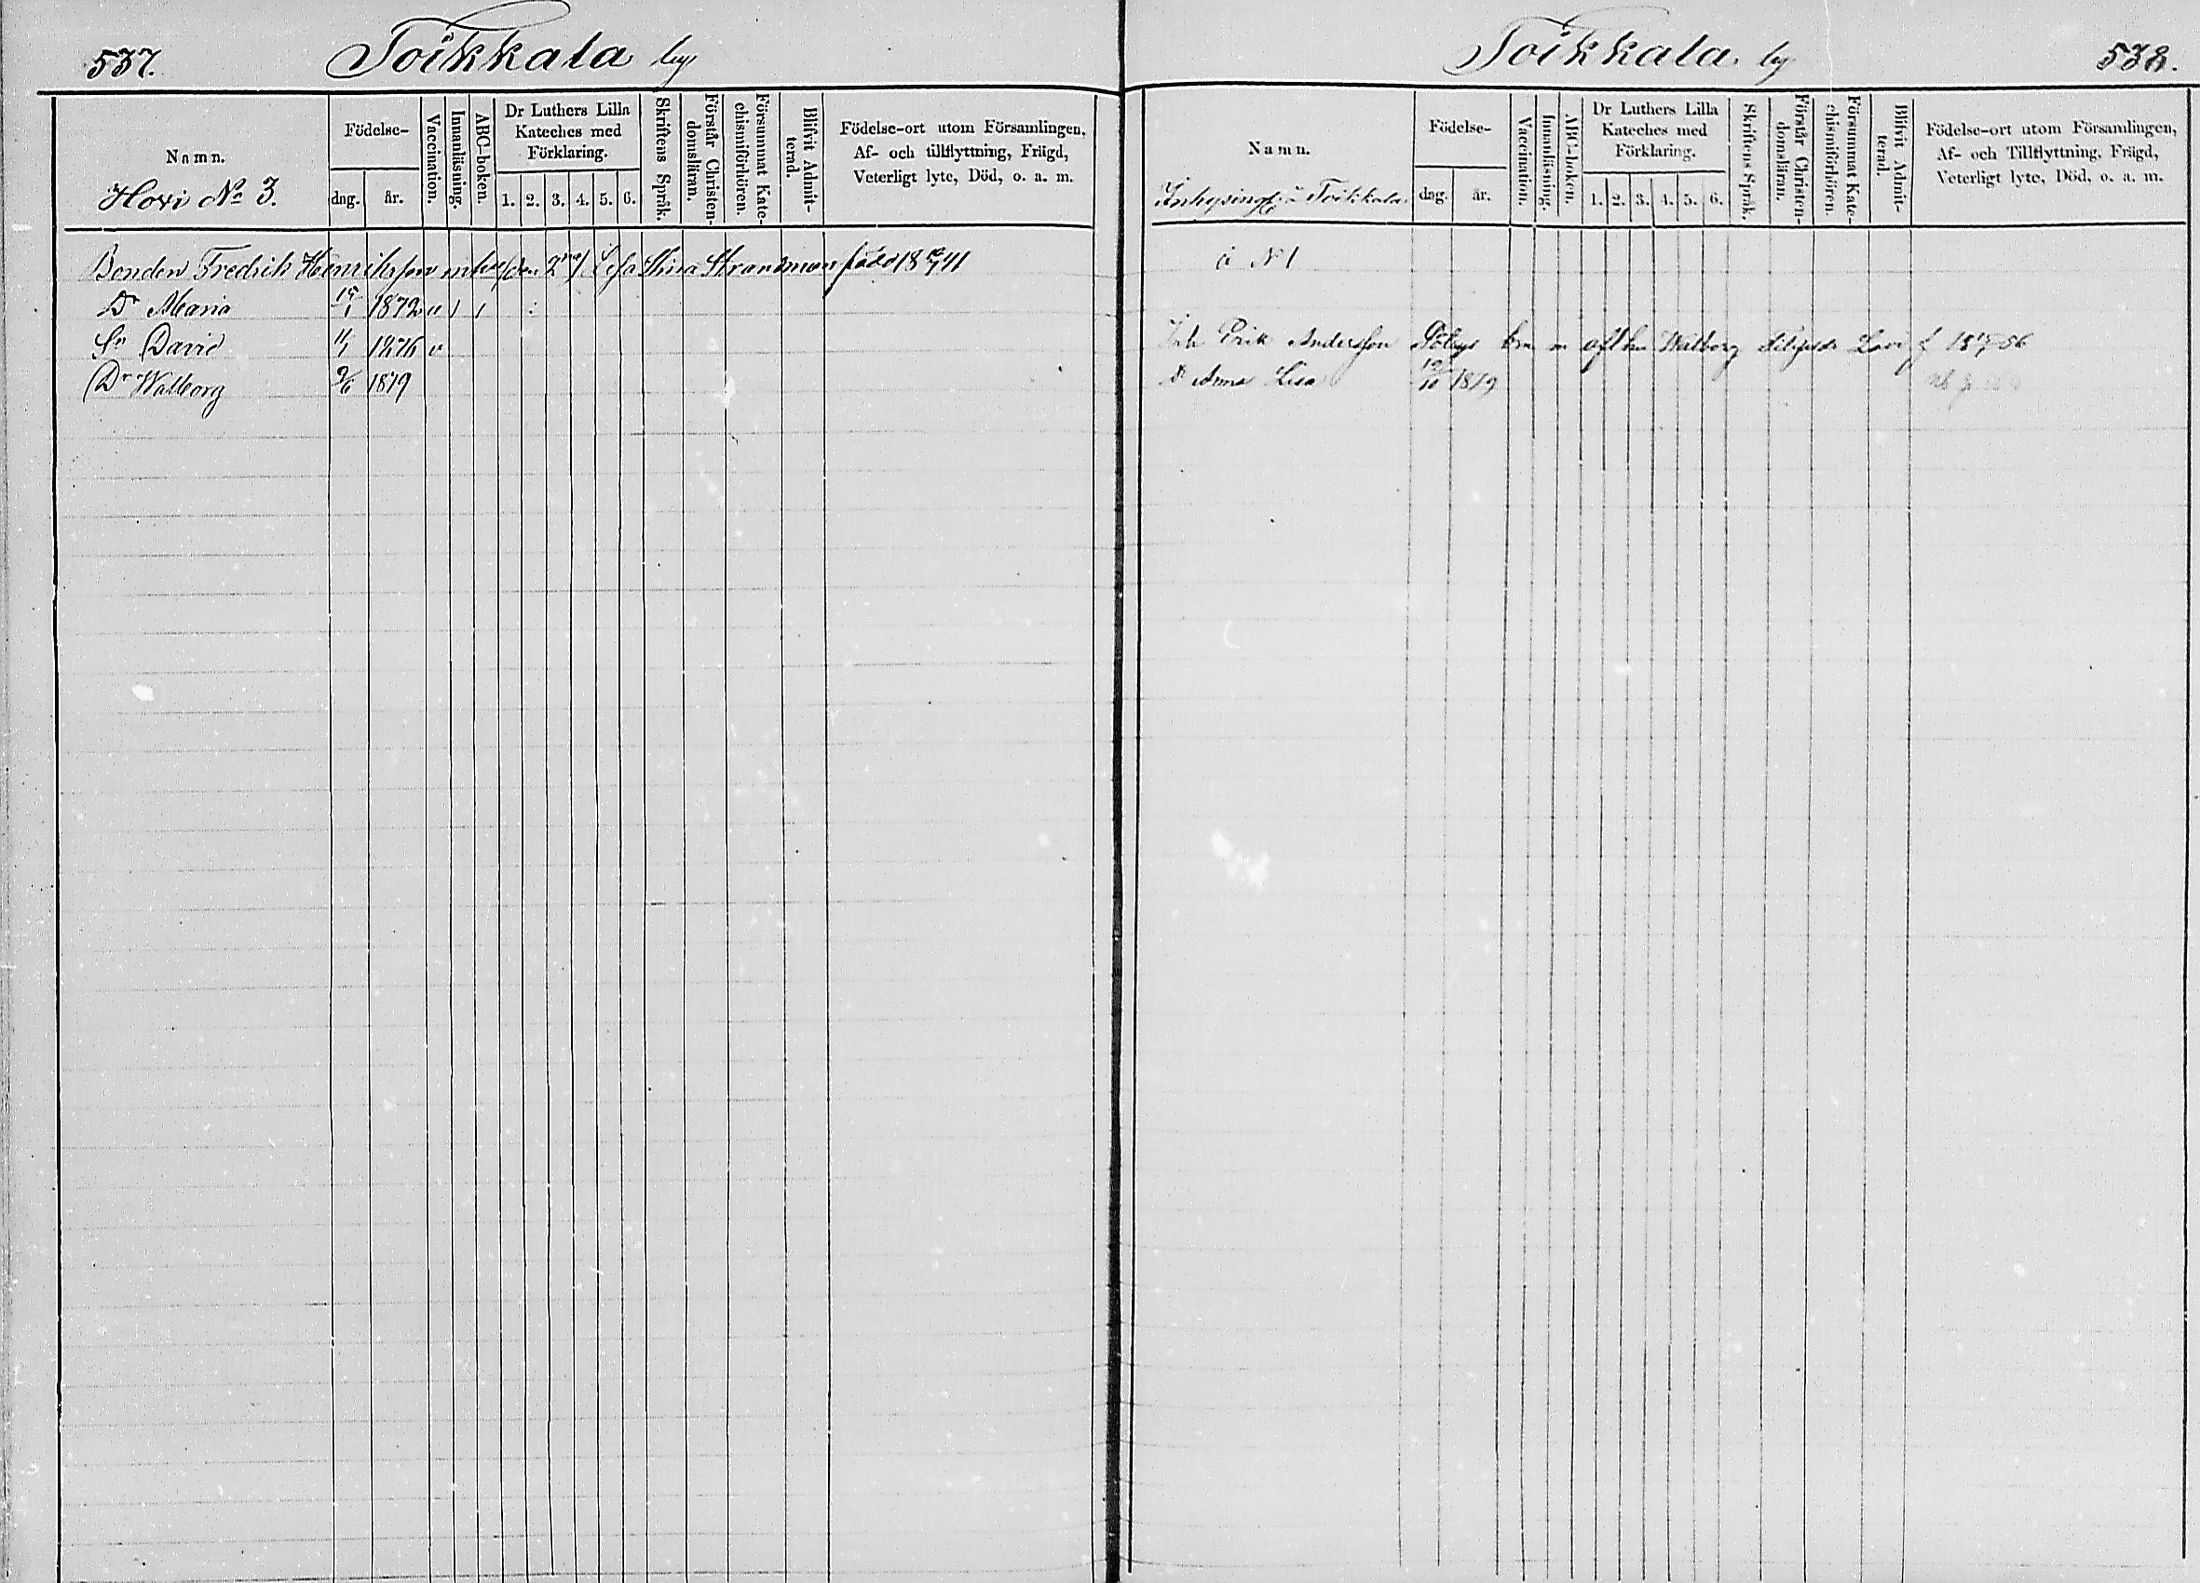 537. Toikkala by
Namn.
Hovi No 3.
Födelse-
dag. år.
Vaccination.
Innanläsning.
ABC-boken.
Dr Luthers Lilla
Kateches med
Förklaring.
1. 2. 3. 4. 5. 6.
Skriftens Språk.
Förstår Christen-
domsläran.
Försummat Kate-
chismiförhören.
Blifvit Admit-
terad.
Födelse-ort utom Församlingen,
Af- och tillflyttning, Frägd,
Veterligt lyte, Död, o. a. m.
Bonden Fredrik Henriksson m hu (den 2ra) Lisa Stina Strandman född 18 41
Dr Maria 15/1 1872 " 1 1
Sn David 11/1 1876 v
Dr Walborg 2/6 1879
Toikkala by 538.
Namn.
Inhysing i Toikkala
Födelse-
dag. år.
Vaccination.
Innanläsning.
ABC-boken.
Dr Luthers Lilla
Kateches med
Förklaring.
1. 2. 3. 4. 5. 6.
Skriftens Språk.
Förstår Christen-
domsläran.
Försummat Kate-
chismiförhören.
Blifvit Admit-
terad.
Födelse-ort utom Församlingen,
Af- och Tillflyttning, Frägd,
Veterligt lyte, Död, o. a. m.
å N 1
Inh Erik Andersson m hu Walborg f 18 56
D Anna Lisa 1879